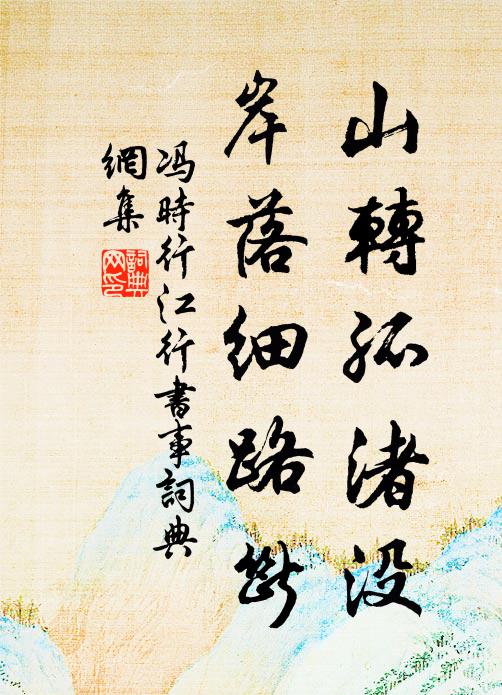 山轉孤渚没
岸落細路斷
冯時行江行書事詞典
網集
詞典
网印